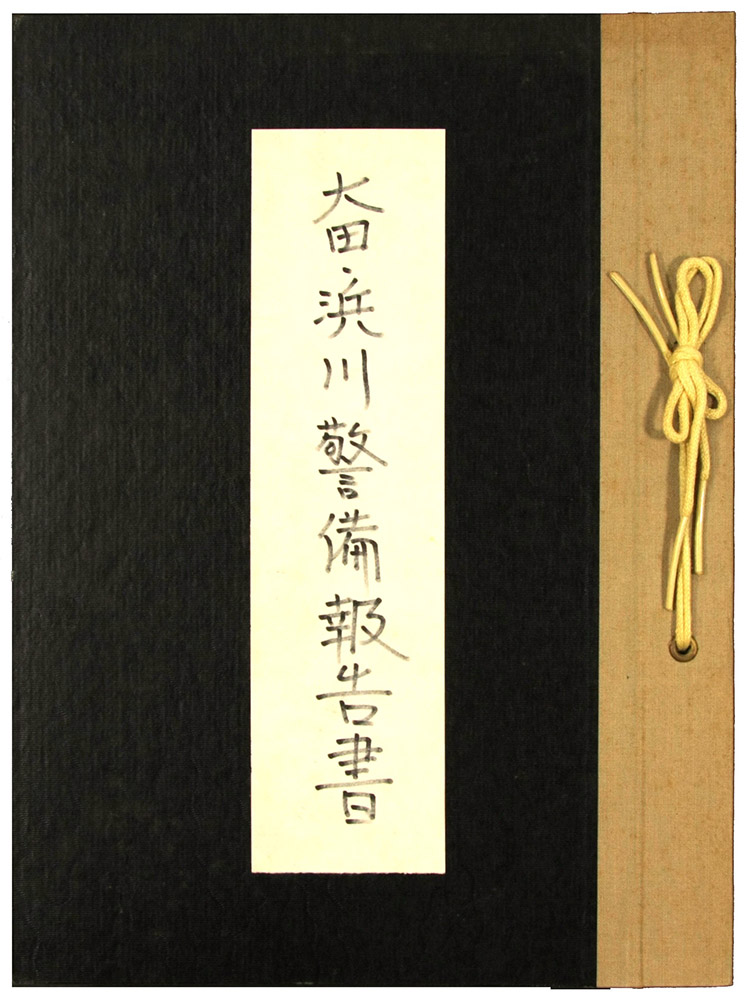 大田・浜川警備報告書